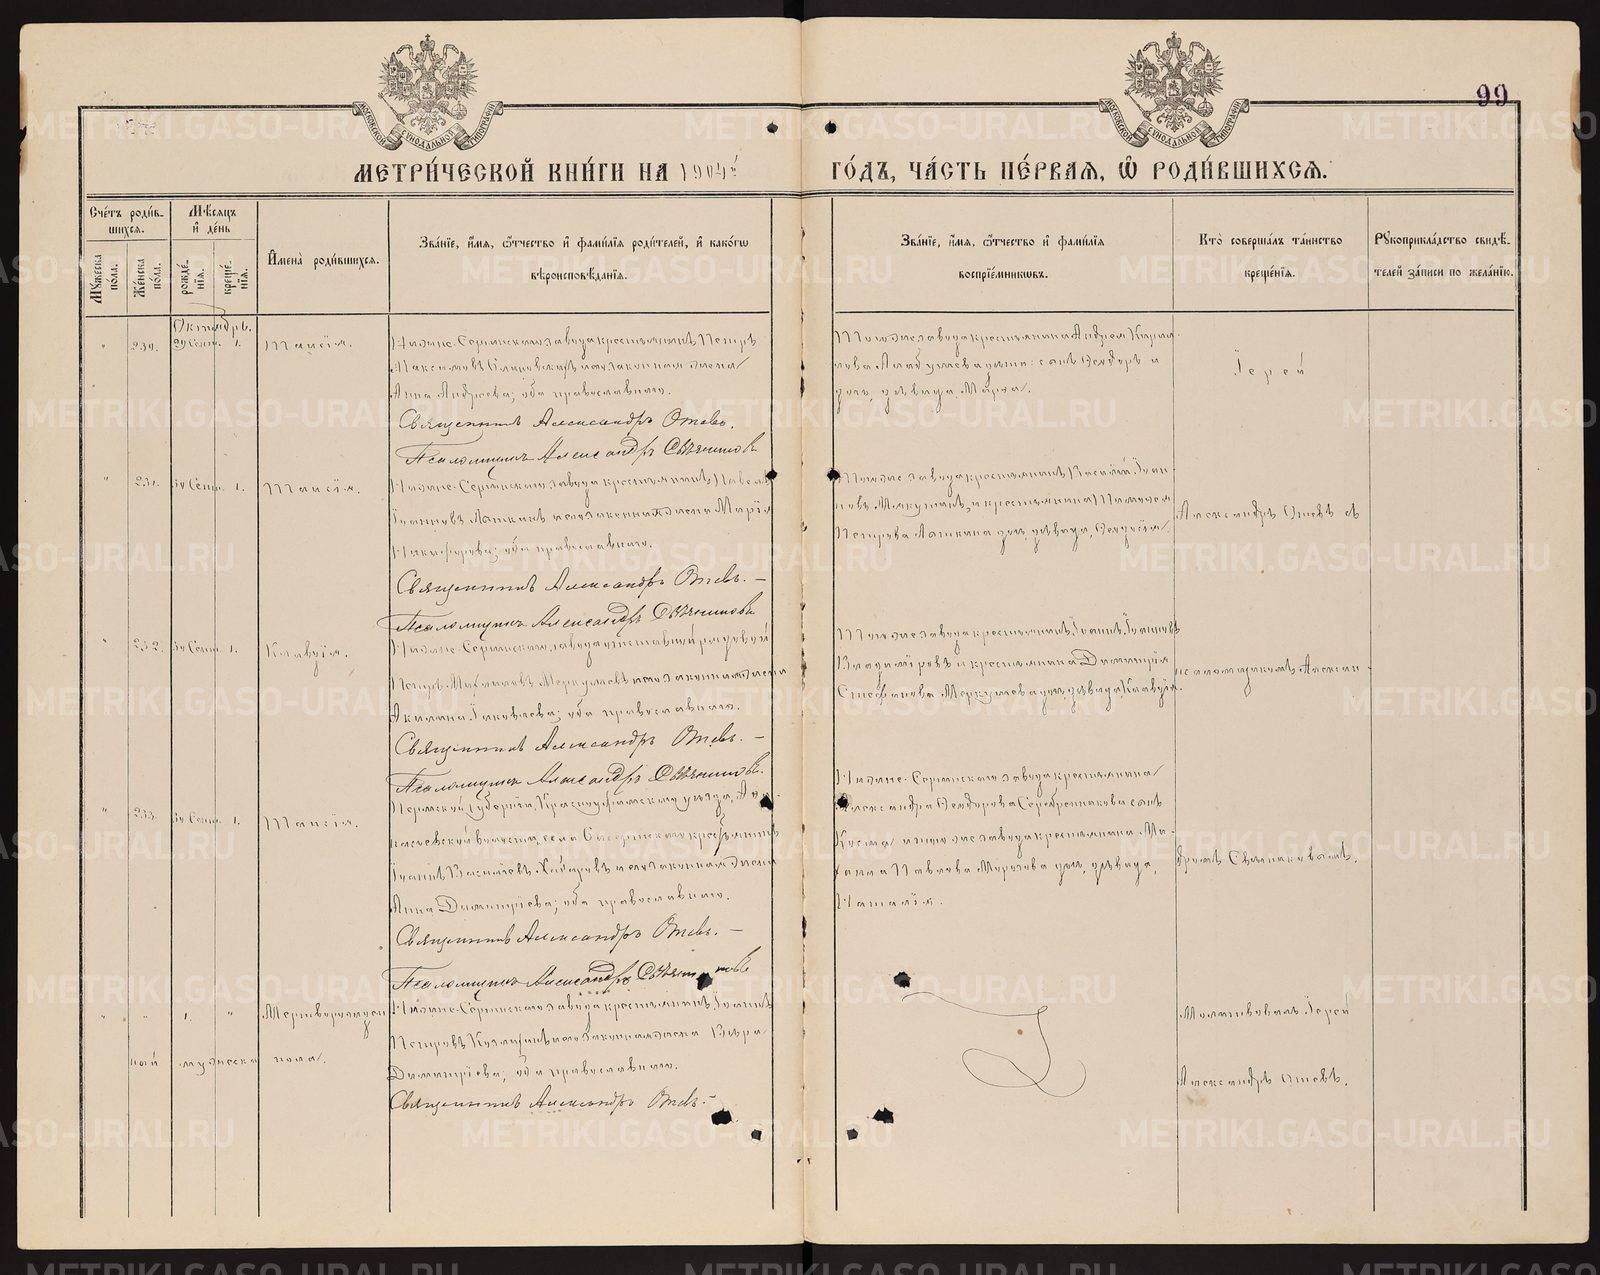 99
МОСКОВСКОЙ СѴНОДАЛЬНОЙ ТИПОГРАФІИ
МОСКОВСКОЙ СѴНОДАЛЬНОЙ ТИПОГРАФІИ
МЕТРИ́ЧЕСКОЙ КНИ́ГИ НА 1904й ГО́ДЪ, ЧА́СТЬ ПЕ́РВАѦ, Ѡ РОДИ́ВШИХСѦ.
Сче́тъ роди́в-
шихсѧ.
Мꙋ́жеска по́ла.
Же́нска по́ла.
Мѣ́сѧцъ
и҆ де́нь
рожде́-нїѧ.
креще́-нїѧ.
И҆мена̀ роди́вшихсѧ.
Зва́нїе, и҆́мѧ, ѻ҆́тчество и҆ фами́лїѧ роди́телей, и҆ како́гѡ
вѣроисповѣ́данїѧ.
Зва́нїе, и҆́мѧ, ѻ҆́тчество и҆ фами́лїѧ
воспрїе́мникѡвъ.
Кто̀ соверша́лъ та́инство
креще́нїѧ.
Рꙋкоприкла́дство свидѣ́-
телей за́писи по жела́нїю.
Октябрь.
" 230. 29 Сент. 1. Таисія.
Нижне-Сергинскаго завода крестьянинъ Петръ
Максимовъ и его законная жена
Анна Андреева; оба православнаго.
Священникъ Александръ Отевъ.
Псаломщикъ Александръ Свѣчниковъ
Того же завода крестьянина Андрея Кирил-
лова сынъ Ѳеодоръ и
дочь, дѣвица Марѳа.
Іерей
" 231. 30 Сент. 1. Таисія.
Нижне-Сергинскаго завода крестьянинъ Павелъ
Іоанновъ Лапкинъ и его законная жена Марія
Никифорова; оба православнаго.
Священникъ Александръ Отевъ. —
Псаломщикъ Александръ Свѣчниковъ
Того же завода крестьянинъ Василій Іоан-
новъ и крестьянина
Петрова Лапкина дочь, дѣвица,
Александръ Отевъ съ
" 232. 30 Сент. 1. Клавдія.
Нижне-Сергинскаго завода
Петръ Меркушевъ и его законная жена
Акилина Іаковлева; оба православнаго.
Священникъ Александръ Отевъ. —
Псаломщикъ Александръ Свѣчниковъ.
Того же завода крестьянинъ Іоаннъ Іоанновъ
и крестьянина Димитрія
Стефанова Меркушева дочь дѣвица Клавдія.
псаломщикомъ Алексан-
" 233. 30 Сент. 1. Таисія.
Пермской губерніи, Красноуфимскаго уѣзда,
волости, села крестьянинъ
Іоаннъ Васильевъ Хабаровъ и его законная жена
Анна Димитріева; оба православнаго.
Священникъ Александръ Отевъ. —
Псаломщикъ Александръ Свѣчниковъ
Нижне-Сергинскаго завода крестьянина
Александра Ѳеодорова Серебренникова сынъ
Косма и того же завода крестьянина Ми-
Павлова дочь, дѣвица,
Наталія.
дромъ Свѣчниковымъ.
" " 1. " Мертворожден-
ный мужеска пола.
Нижне-Сергинскаго завода крестьянинъ Іоаннъ
Петровъ и его законная жена Вѣра
Димитріева; оба православнаго.
Священникъ Александръ Отевъ. —
Молитвовалъ Іерей
Александръ Отевъ.
METRIKI.GASO-URAL.RU